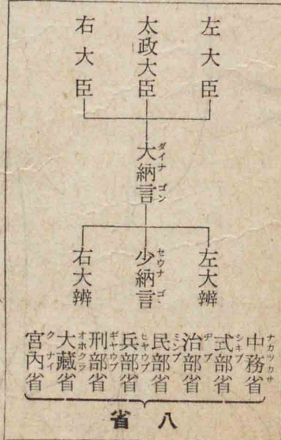 左大臣
太政大臣
右大臣
大納言
ダイナゴン
左大辨
少納言
セウナゴ
右大辨
中務省
ナカツカサ
式部省
シキブ
治部省
ヂブ
民部省
ミンブ
兵部省
ヒヤウブ
刑部省
ギヤウブ
大藏省
オホクラ
宮內省
クナイ
八省